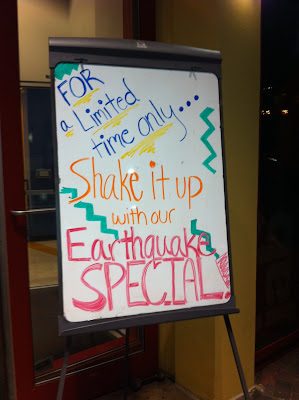 FOR
a Limited
time only...
Shake it up
with our
Earthquake
SPECIAL!